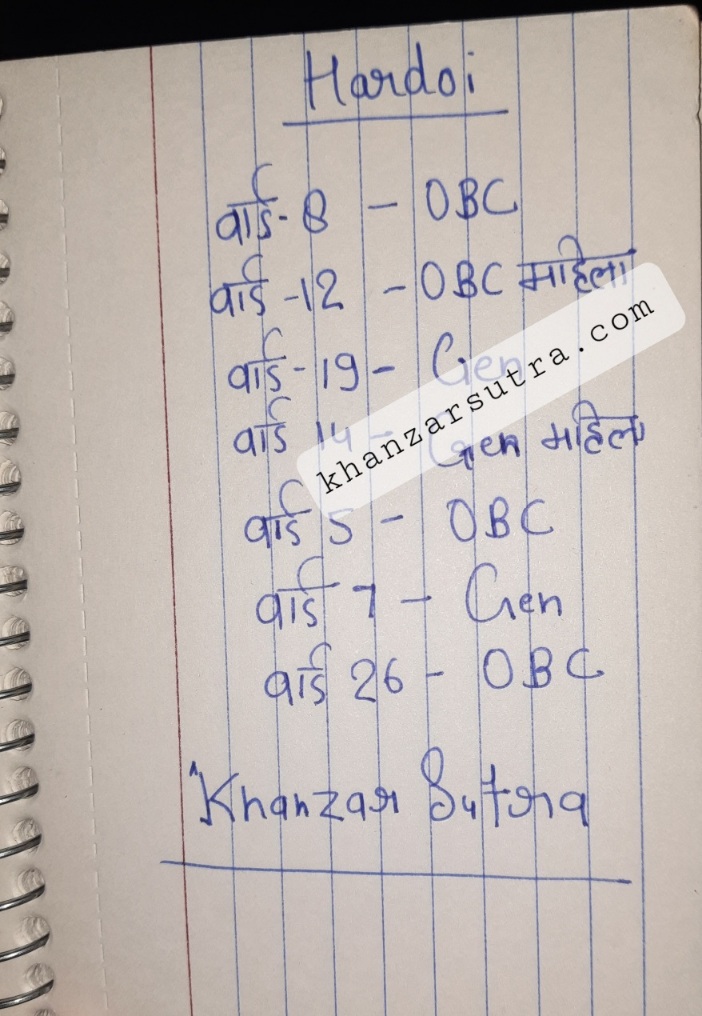 Hardoi
वार्ड-8 - OBC
वार्ड-12 - OBC महिला
वार्ड-19 - Gen
वार्ड 14 - Gen महिला
वार्ड 5 - OBC
वार्ड 7 - Gen
वार्ड 26 - OBC
Khanzar Sutra
khanzarsutra.com